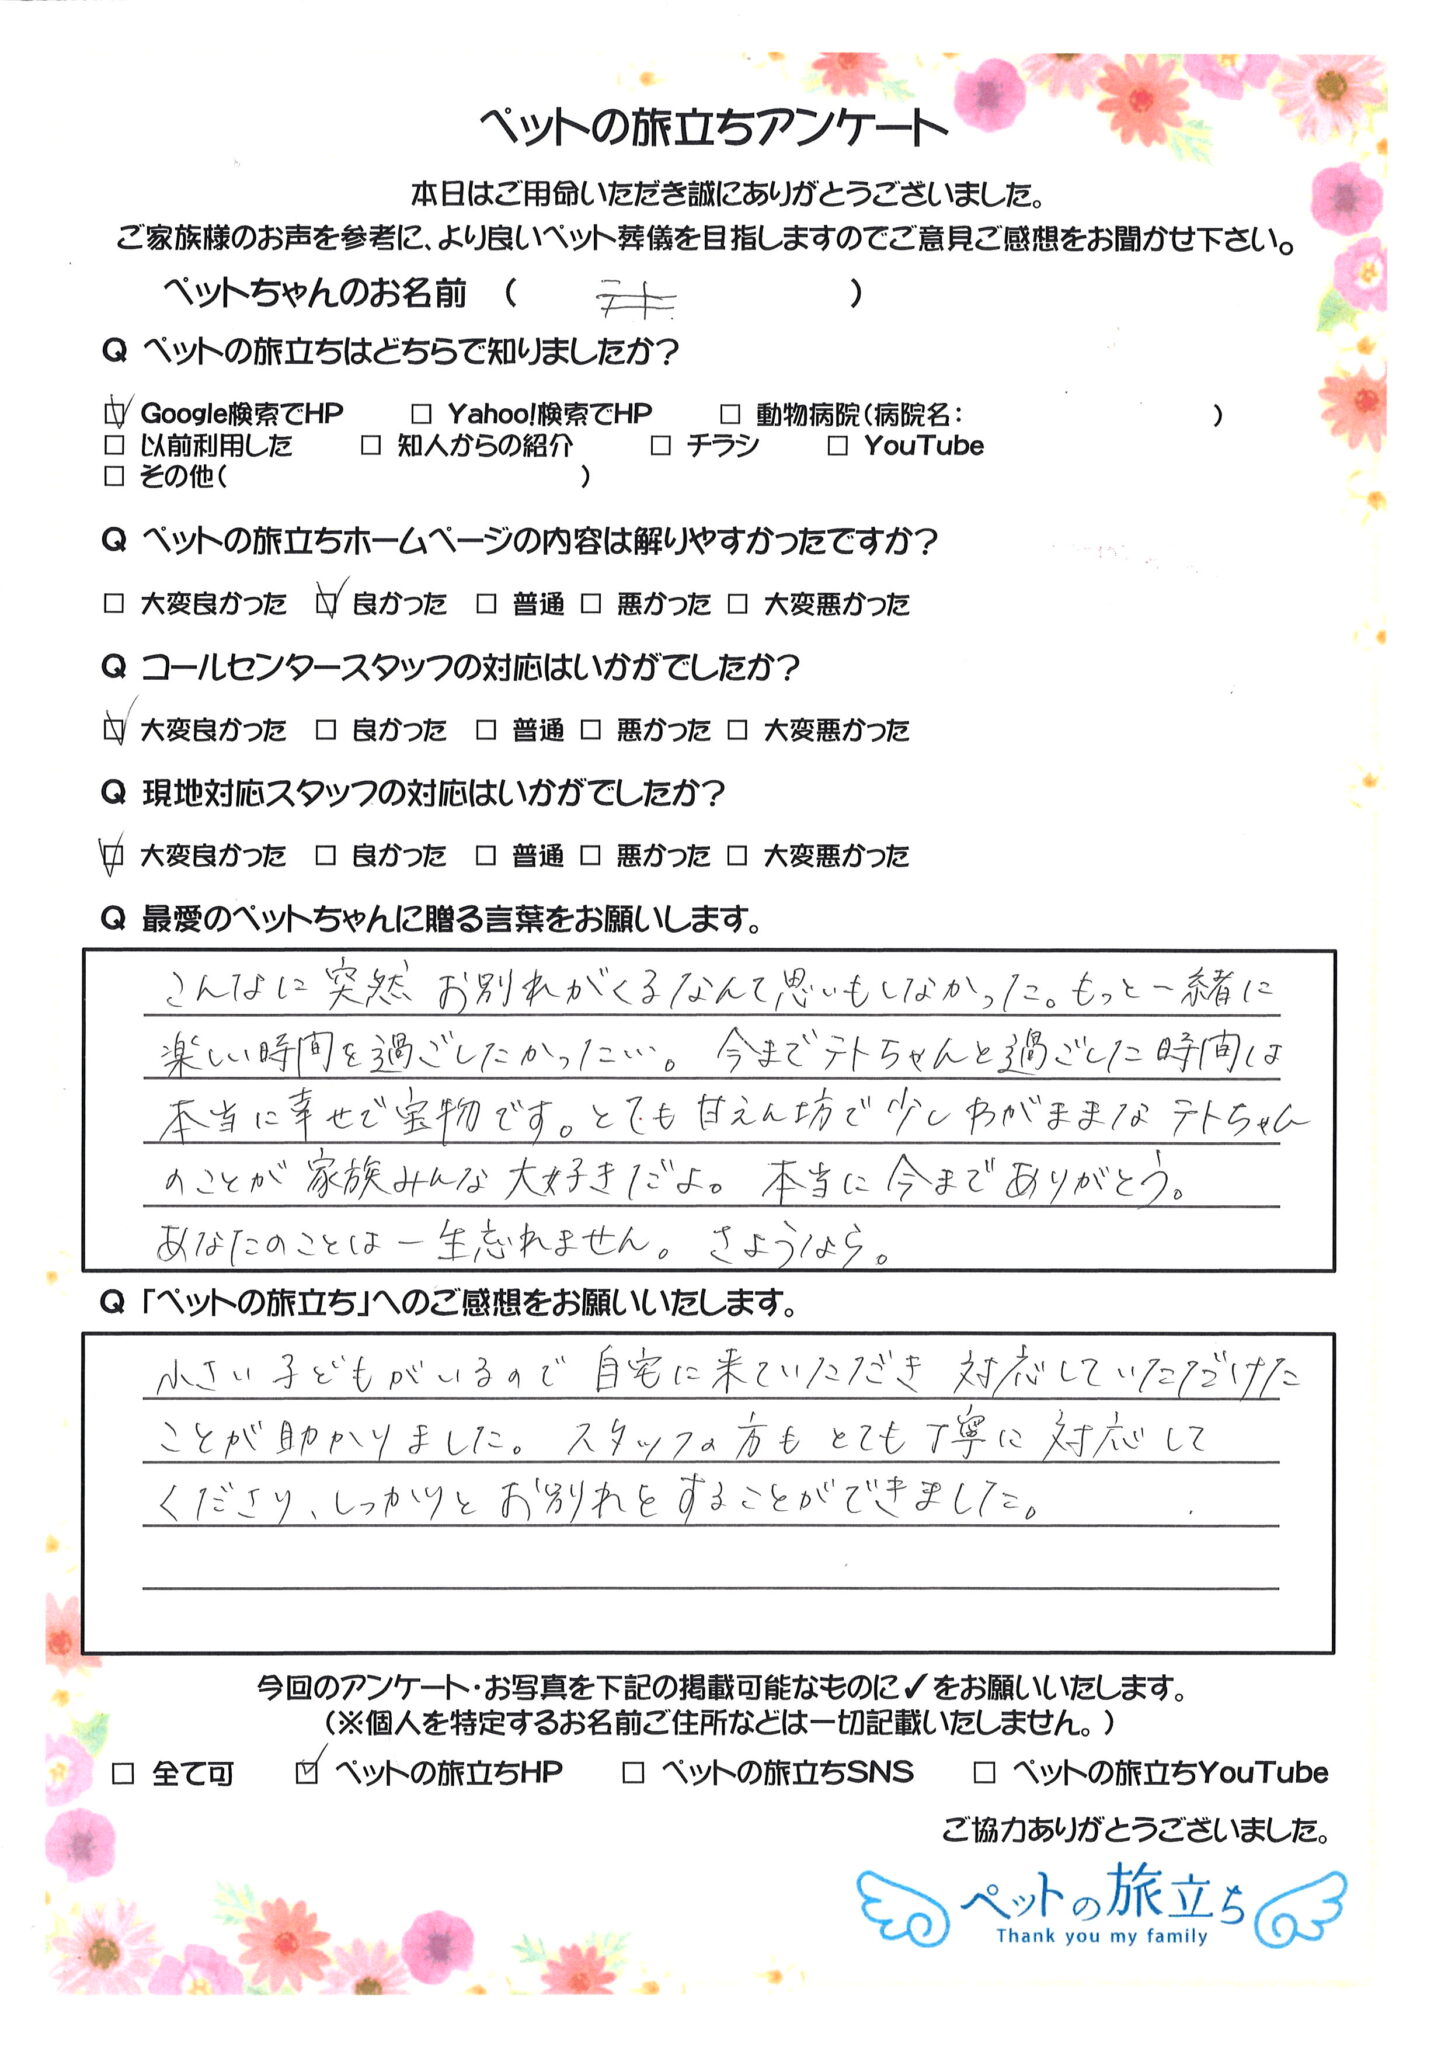 ペットの旅立ちアンケート
本日はご用命いただき誠にありがとうございました。
ご家族様のお声を参考に、より良いペット葬儀を目指しますのでご意見ご感想をお聞かせ下さい。
ペットちゃんのお名前 ( )
Q ペットの旅立ちはどちらで知りましたか?
☑ Google検索でHP □ Yahoo!検索でHP □ 動物病院(病院名: )
□ 以前利用した □ 知人からの紹介 □ チラシ □ YouTube
□ その他( )
Q ペットの旅立ちホームページの内容は解りやすかったですか?
□ 大変良かった ☑ 良かった □ 普通 □ 悪かった □ 大変悪かった
Q コールセンタースタッフの対応はいかがでしたか?
☑ 大変良かった □ 良かった □ 普通 □ 悪かった □ 大変悪かった
Q 現地対応スタッフの対応はいかがでしたか?
☑ 大変良かった □ 良かった □ 普通 □ 悪かった □ 大変悪かった
Q 最愛のペットちゃんに贈る言葉をお願いします。
こんなに突然お別れがくるなんて思いもしなかった。もっと一緒に
楽しい時間を過ごしたかったい…。今までテトちゃんと過ごした時間は
本当に幸せで宝物です。とても甘えん坊で少しわがままなテトちゃん
のことが家族みんな大好きだよ。本当に今までありがとう。
あなたのことは一生忘れません。さようなら。
Q 「ペットの旅立ち」へのご感想をお願いいたします。
小さい子どもがいるので自宅に来ていただき対応していただけた
ことが助かりました。スタッフの方もとても丁寧に対応して
くださり、しっかりとお別れをすることができました。
今回のアンケート・お写真を下記の掲載可能なものに✓をお願いいたします。
(※個人を特定するお名前ご住所などは一切記載いたしません。)
□ 全て可 ☑ ペットの旅立ちHP □ ペットの旅立ちSNS □ ペットの旅立ちYouTube
ご協力ありがとうございました。
ペットの旅立ち
Thank you my family